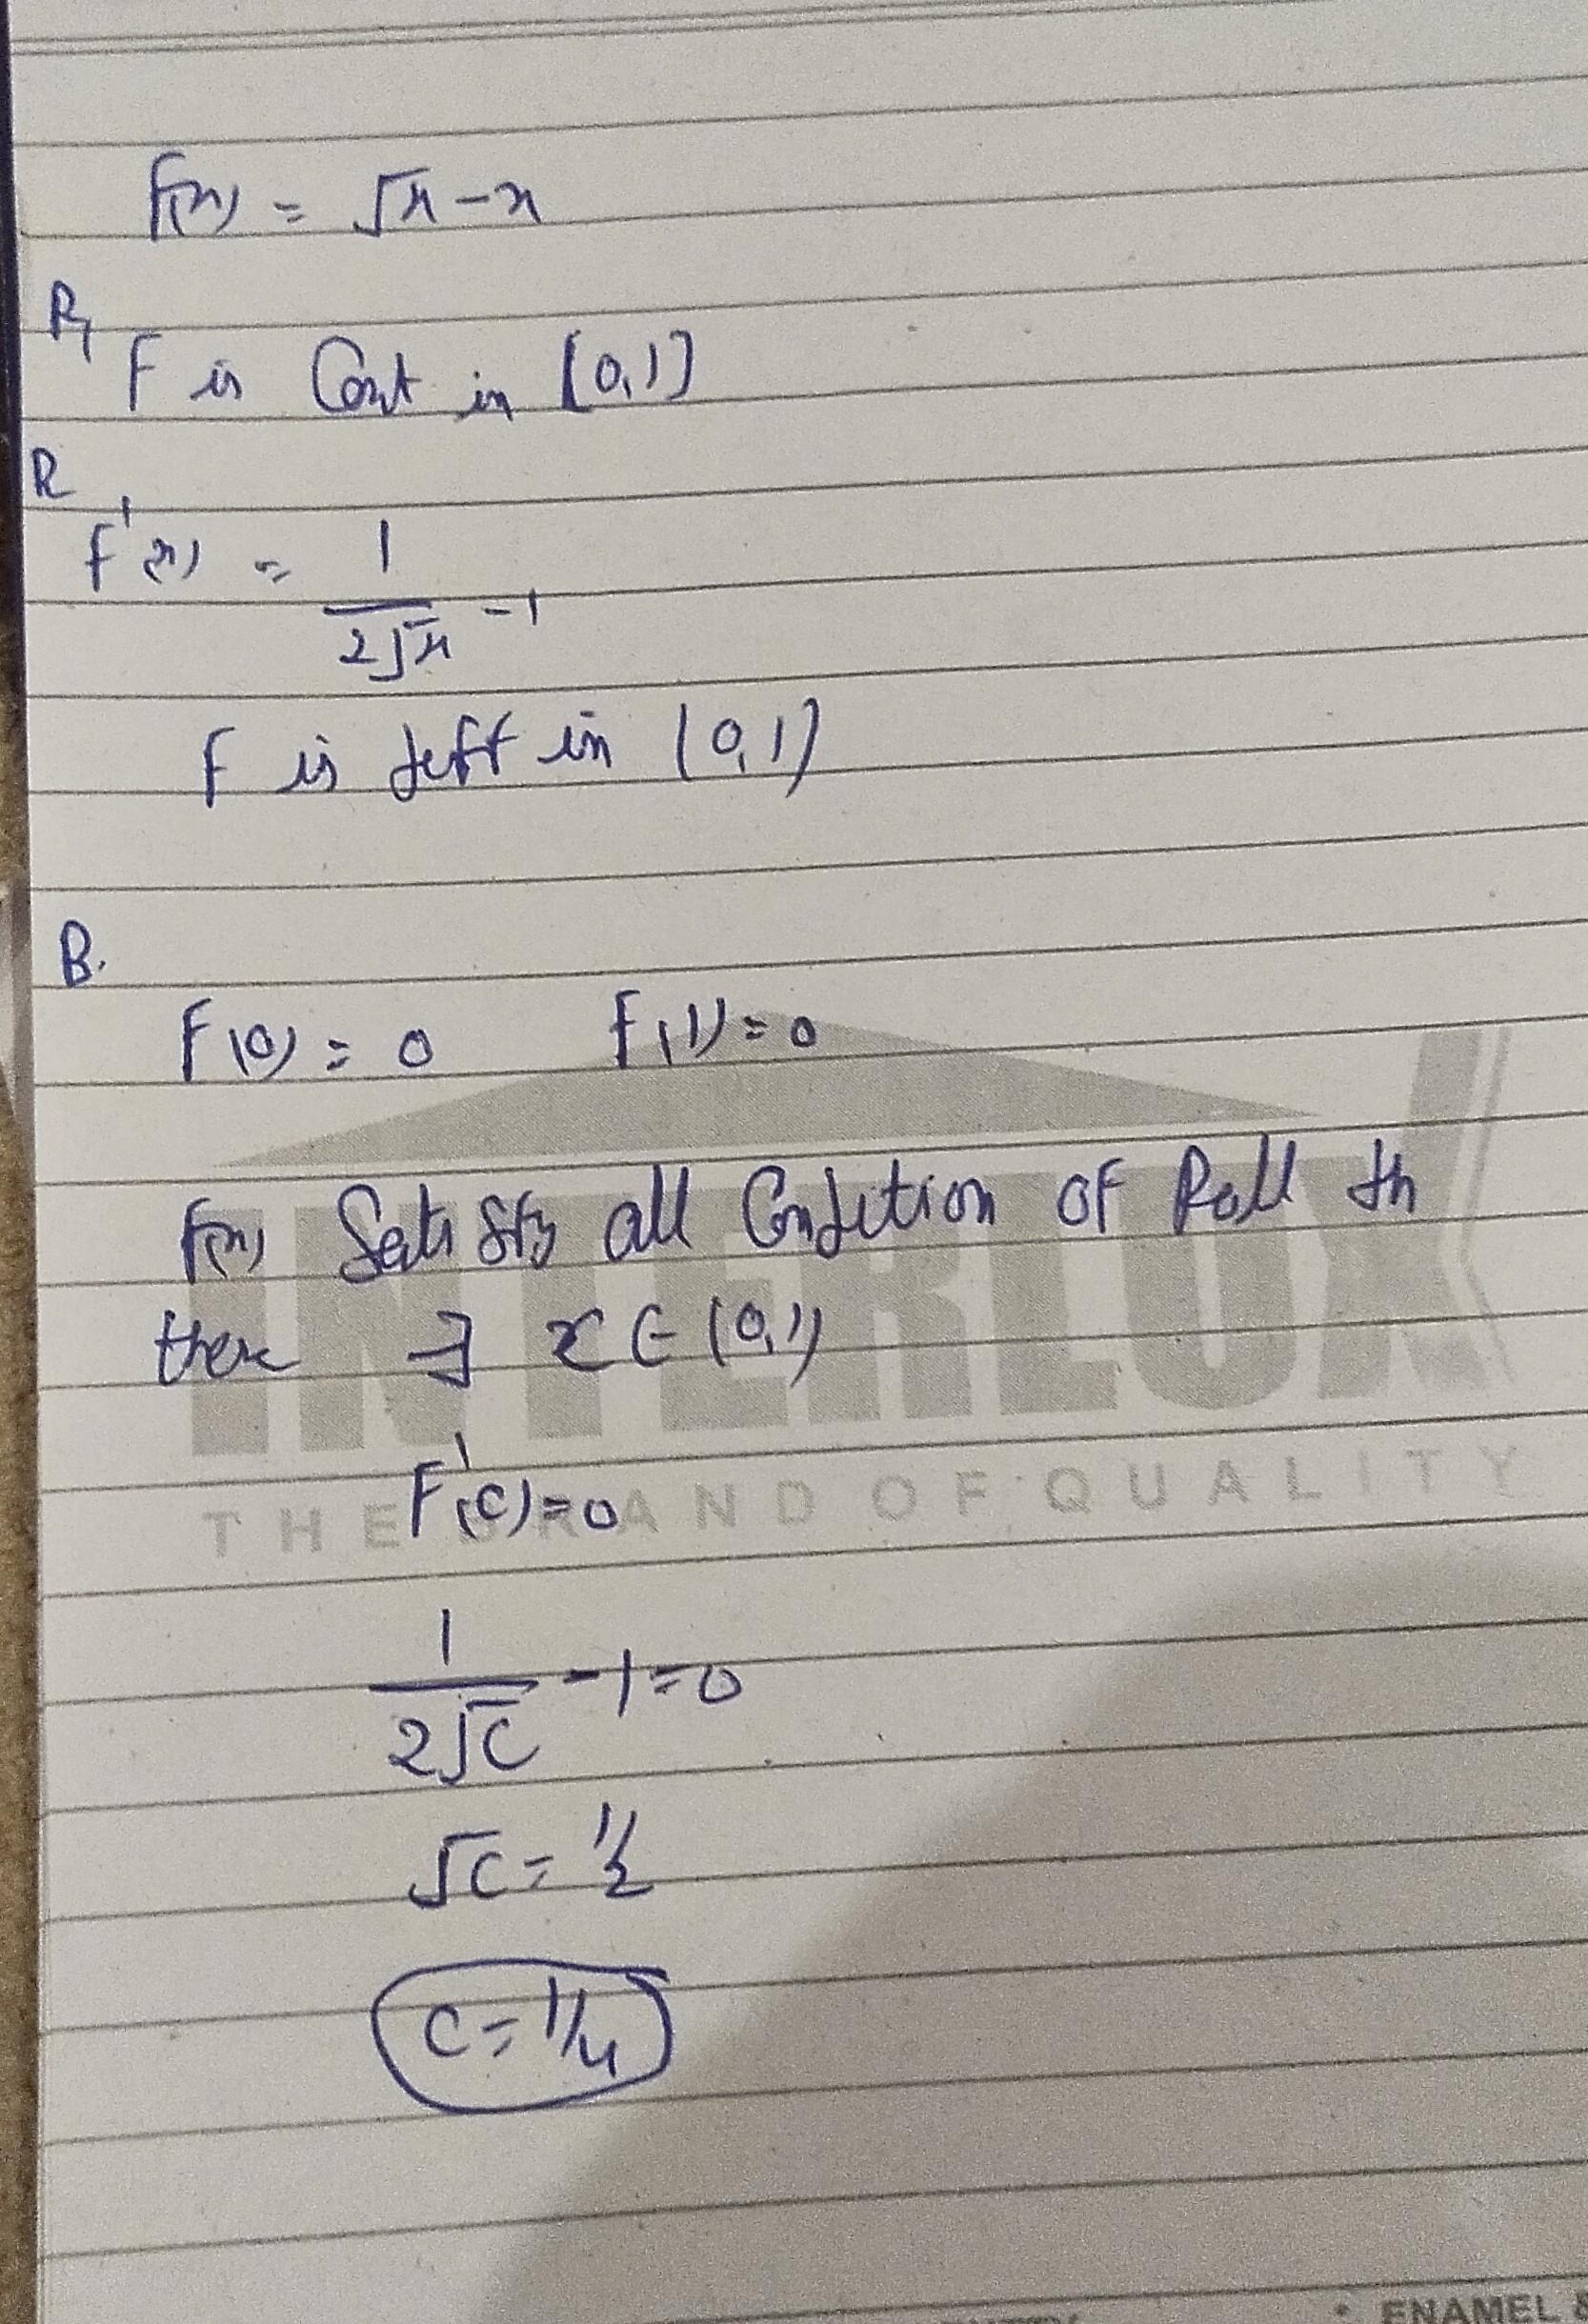 f(x) = √x - x
R₁
F is Cont in [0,1]
R
f'(x) = 1/2√x - 1
f is diff in (0,1)
B.
F(0) = 0 f(1) = 0
f(x) Satisfy all Condition of Roll th
there ∃ x ∈ (0,1)
F'(c) = 0
1/2√c - 1 = 0
√c = 1/2
c = 1/4
INTERLUX
THE BRAND OF QUALITY
• ENAMEL &